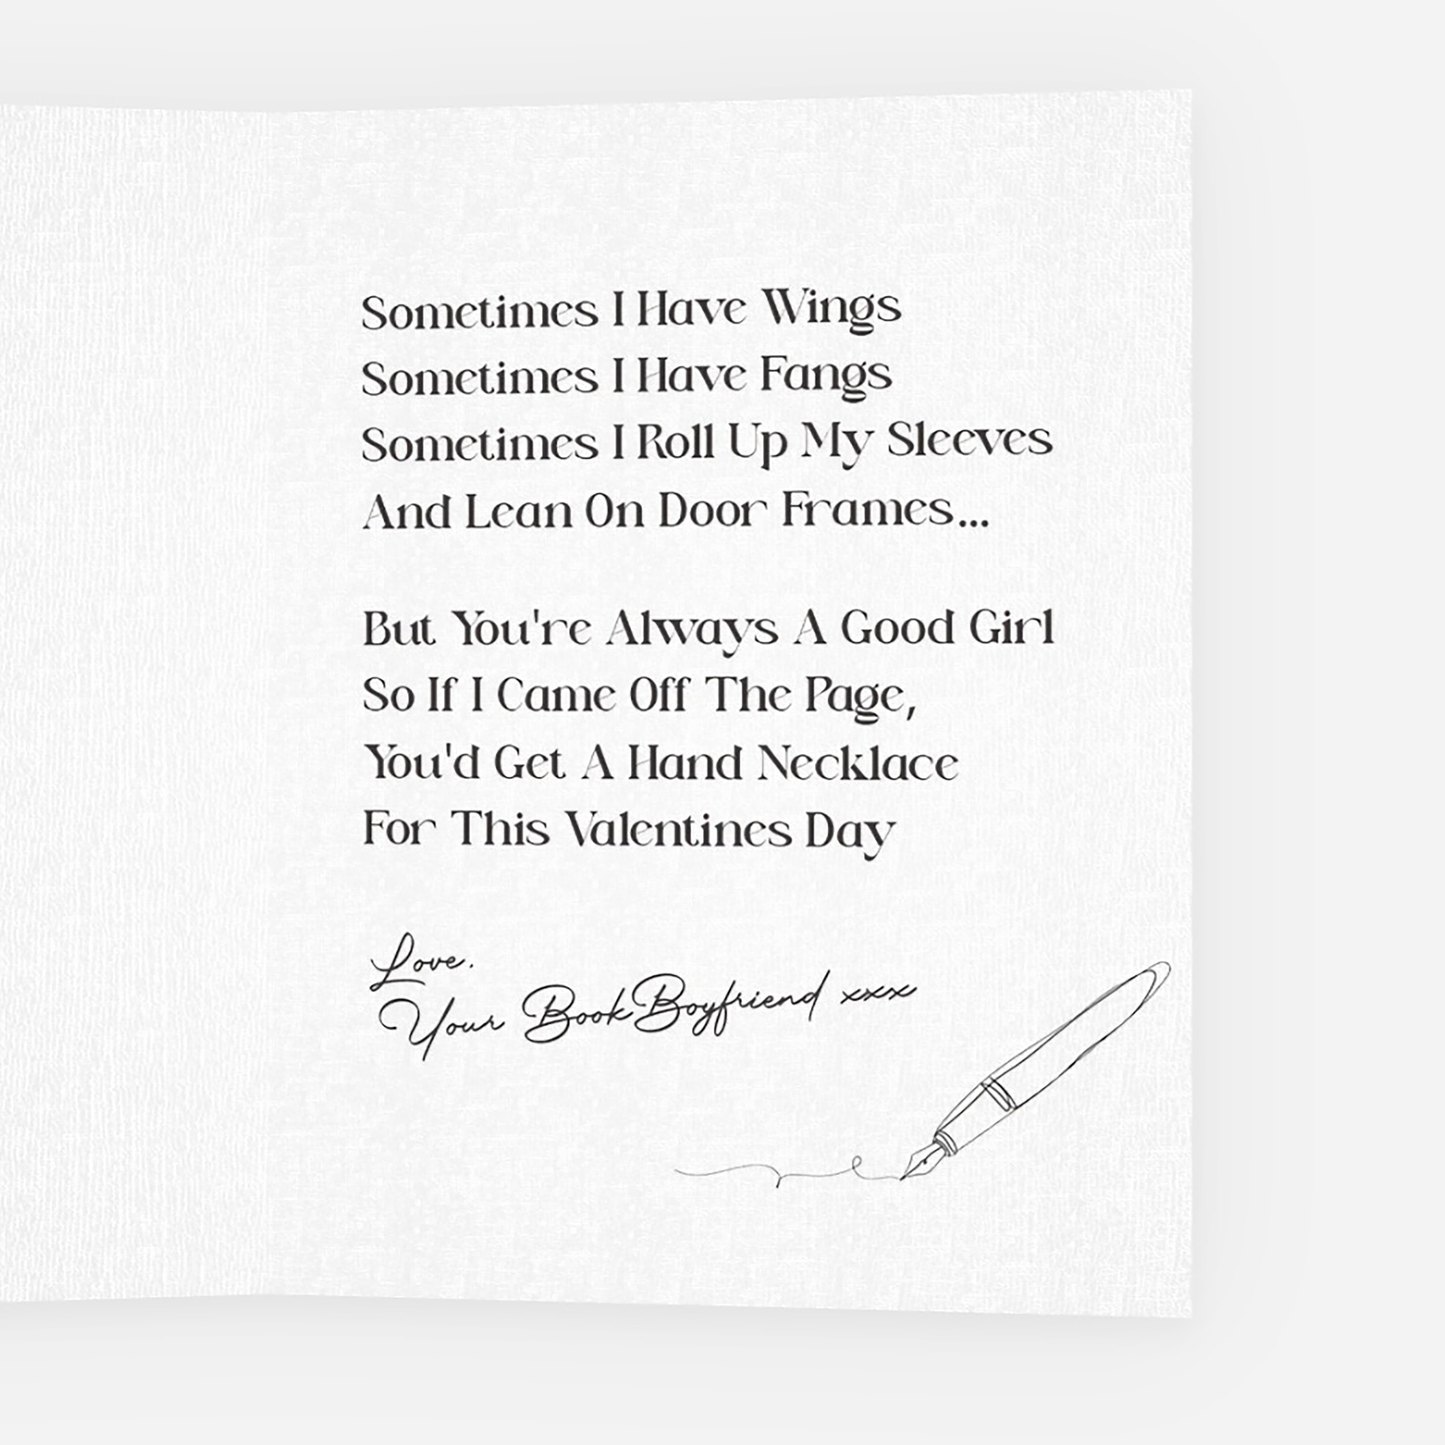 Sometimes I Have Wings
Sometimes I Have Fangs
Sometimes I Roll Up My Sleeves
And Lean On Door Frames...
But You're Always A Good Girl
So If I Came Off The Page,
You'd Get A Hand Necklace
For This Valentines Day
Love.
Your Book Boyfriend xxx